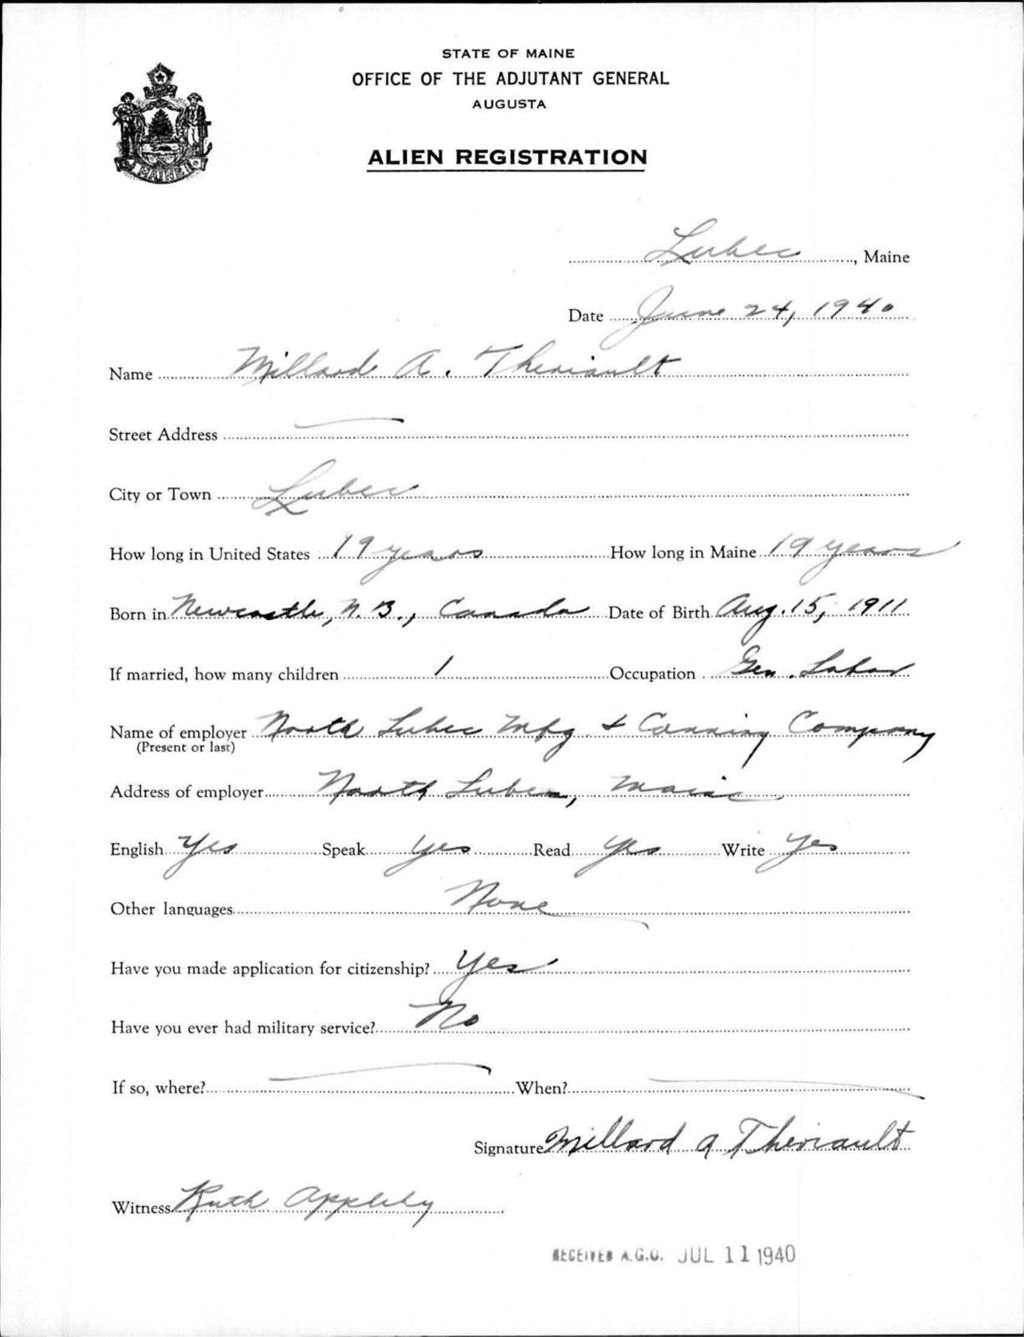 STATE OF MAINE
OFFICE OF THE ADJUTANT GENERAL
AUGUSTA
ALIEN REGISTRATION
MAINE
Lubec, Maine
Date June 24, 1940
Name Millard A. Theriault
Street Address —
City or Town Lubec
How long in United States 19 years How long in Maine 19 years
Born in Newcastle, N.B., Canada Date of Birth Aug. 15, 1911
If married, how many children 1 Occupation Gen. Labor
Name of employer North Lubec Mfg & Canning Company
(Present or last)
Address of employer North Lubec, Maine
English Yes Speak Yes Read Yes Write Yes
Other languages None
Have you made application for citizenship? Yes
Have you ever had military service? No
If so, where? — When? —
Signature Millard A Theriault
Witness Ruth Appleby
RECEIVED A.G.O. JUL 11 1940